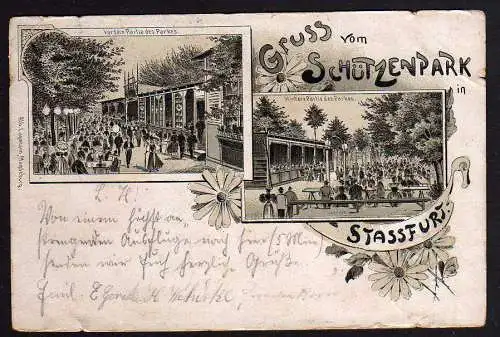 Vordere Partie des Parkes.
Gruss vom
Schützenpark
in
Hintere Partie des Parkes.
Stassfurt
L. H.!
Von einem höchst an-
strengenden Ausfluge nach hier (5 Min)
senden wir Euch herzliche Grüße.
Emil